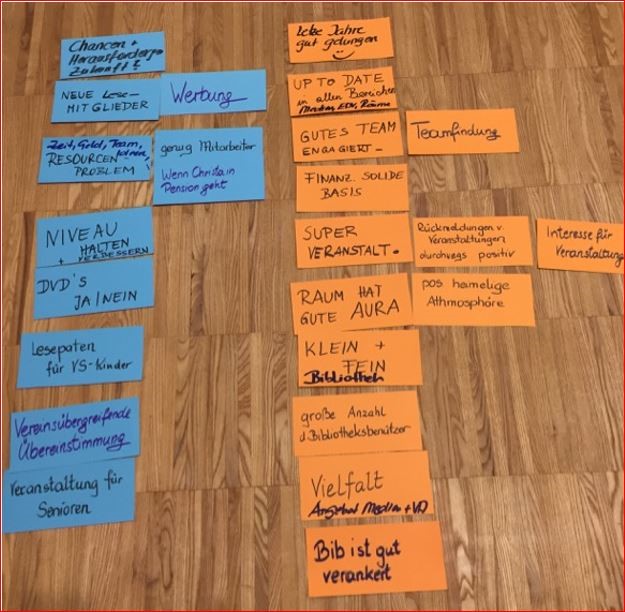 Chancen +
Herausforderungen
Zukunft?
NEUE LESE-
MITGLIEDER
Werbung
Zeit, Geld, Team,
RESOURCEN
PROBLEM
genug Mitarbeiter
Wenn Christa in
Pension geht
NIVEAU
HALTEN
+ VERBESSERN
DVD'S
JA/NEIN
Lesepaten
für VS-Kinder
Vereinsübergreifende
Übereinstimmung
Veranstaltung für
Senioren
letze Jahre
gut gelungen
UP TO DATE
in allen Bereichen
Medien, EDV, Räume
GUTES TEAM
ENGAGIERT -
Teamfindung
FINANZ. SOLIDE
BASIS
SUPER
VERANSTALT.
Rückmeldungen v.
Veranstaltungen
durchwegs positiv
Interesse für
Veranstaltung
RAUM HAT
GUTE AURA
pos hamelige
Athmosphäre
KLEIN +
FEIN
Bibliothek
große Anzahl
d. Bibliotheksbenützer
Vielfalt
Angebot Medien + VA
Bib ist gut
verankert